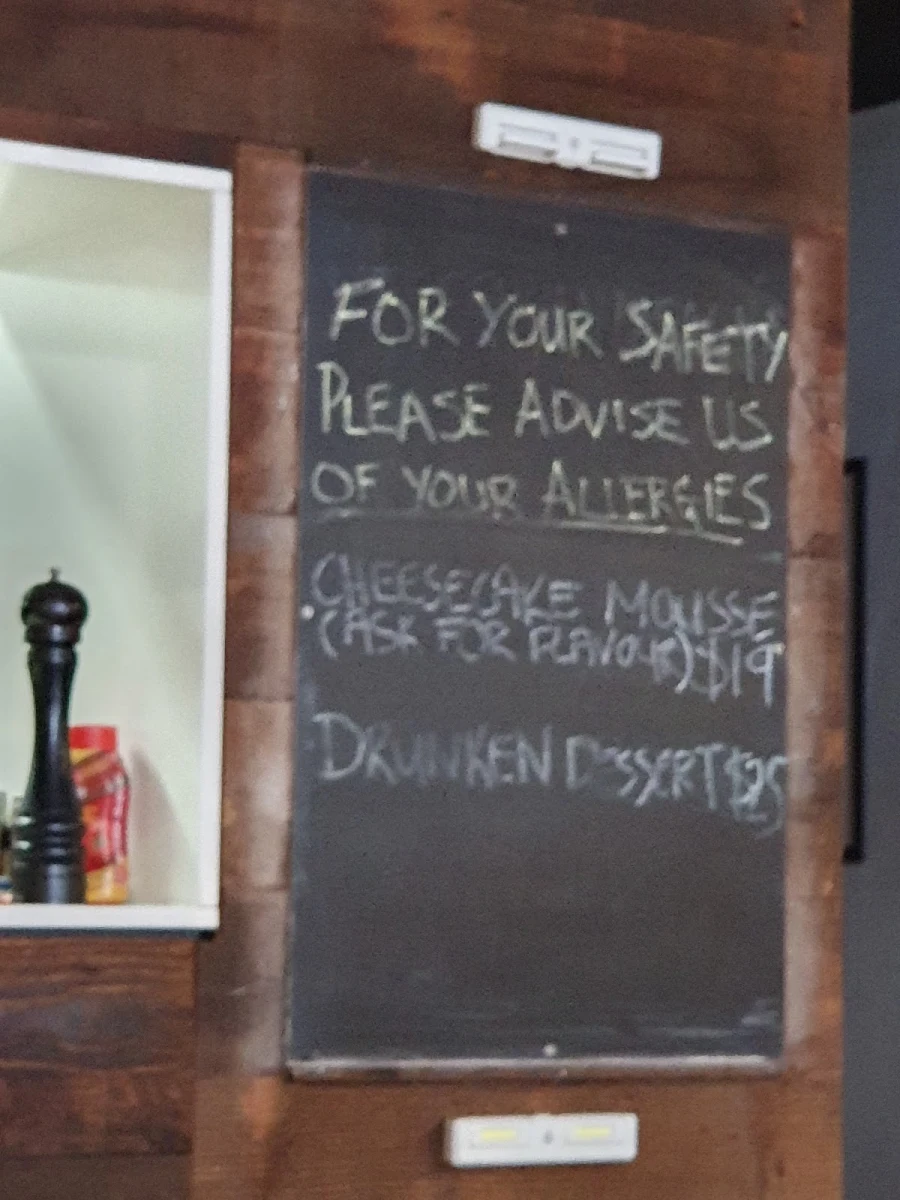 FOR YOUR SAFETY
PLEASE ADVISE US
OF YOUR ALLERGIES
CHEESECAKE MOUSSE
(ASK FOR FLAVOUR) $19
DRUNKEN DESSERT $25